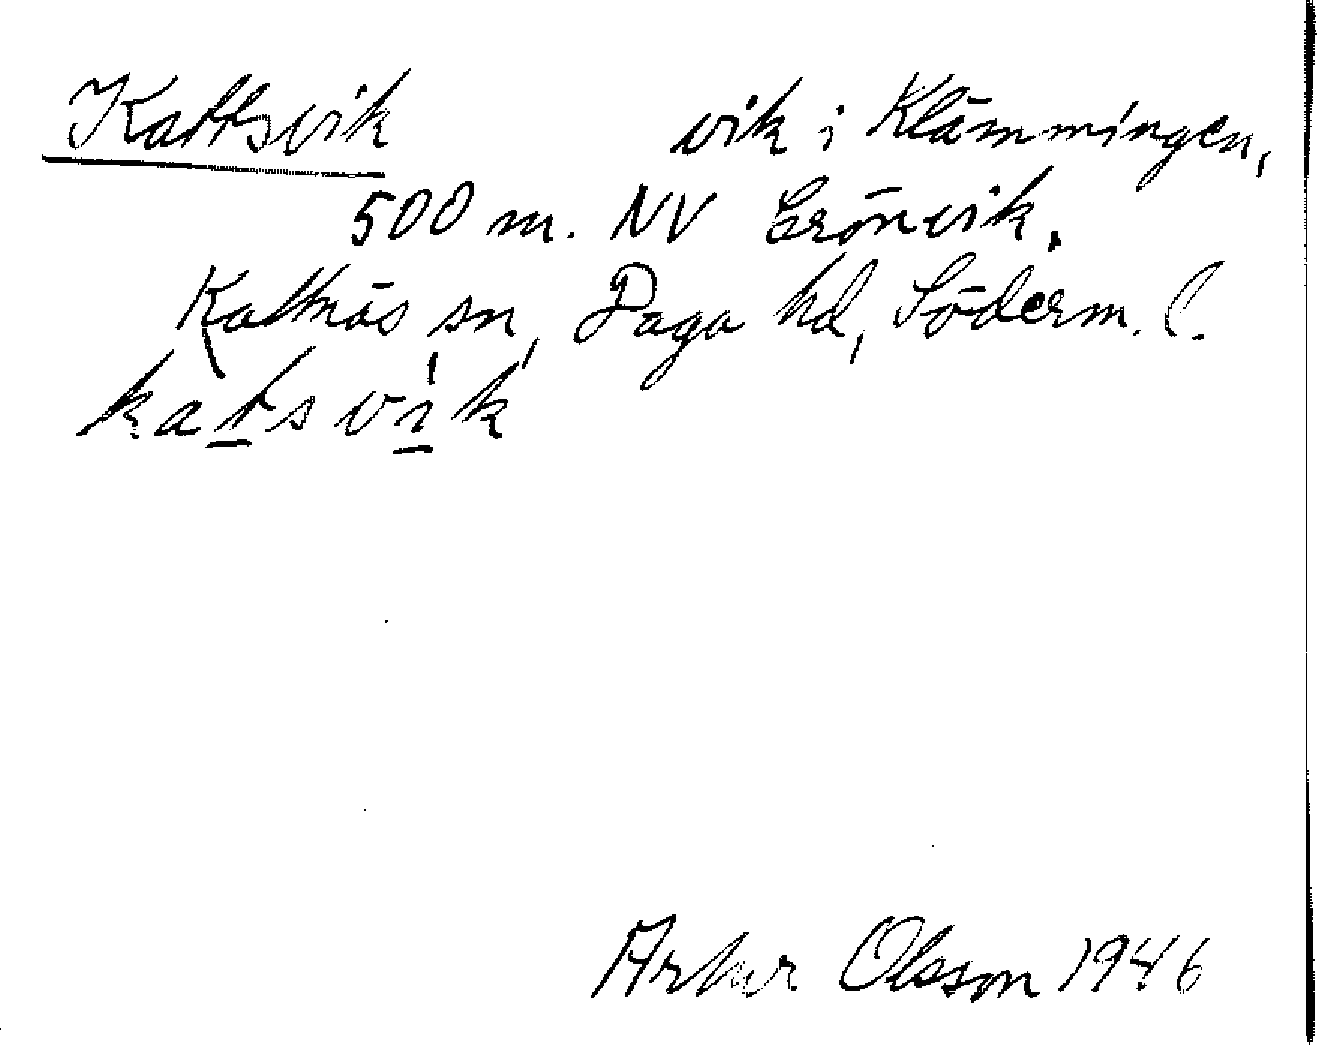 Kattsvik vik i Klämmingen,
500 m. NV Grönvik.
Kattnäs sn, Daga hd, Söderm. l.
katsvik
Artur Olsson 1946